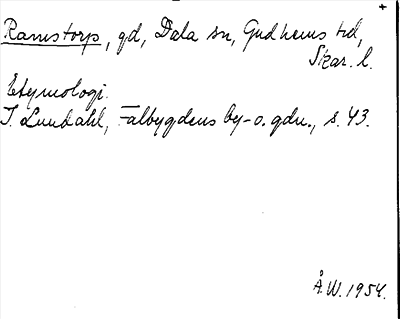 +
Ramstorp, gd, Dala sn, Gudhems hd,
Skar. l.
Etymologi.
I. Lundahl, Falbygdens by- o. gdn., s. 43.
Å.W. 1954.